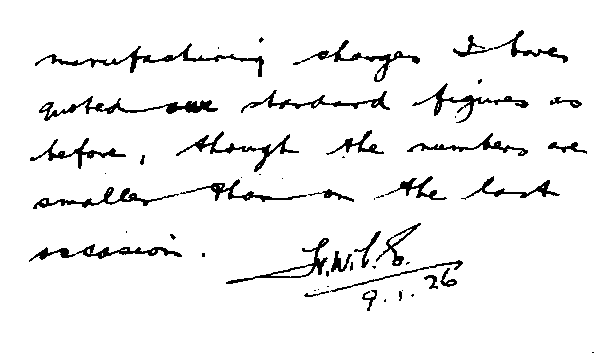 manufacturing charges I have
quoted our standard figures as
before, though the numbers are
smaller than on the last
occasion.
9.1.26